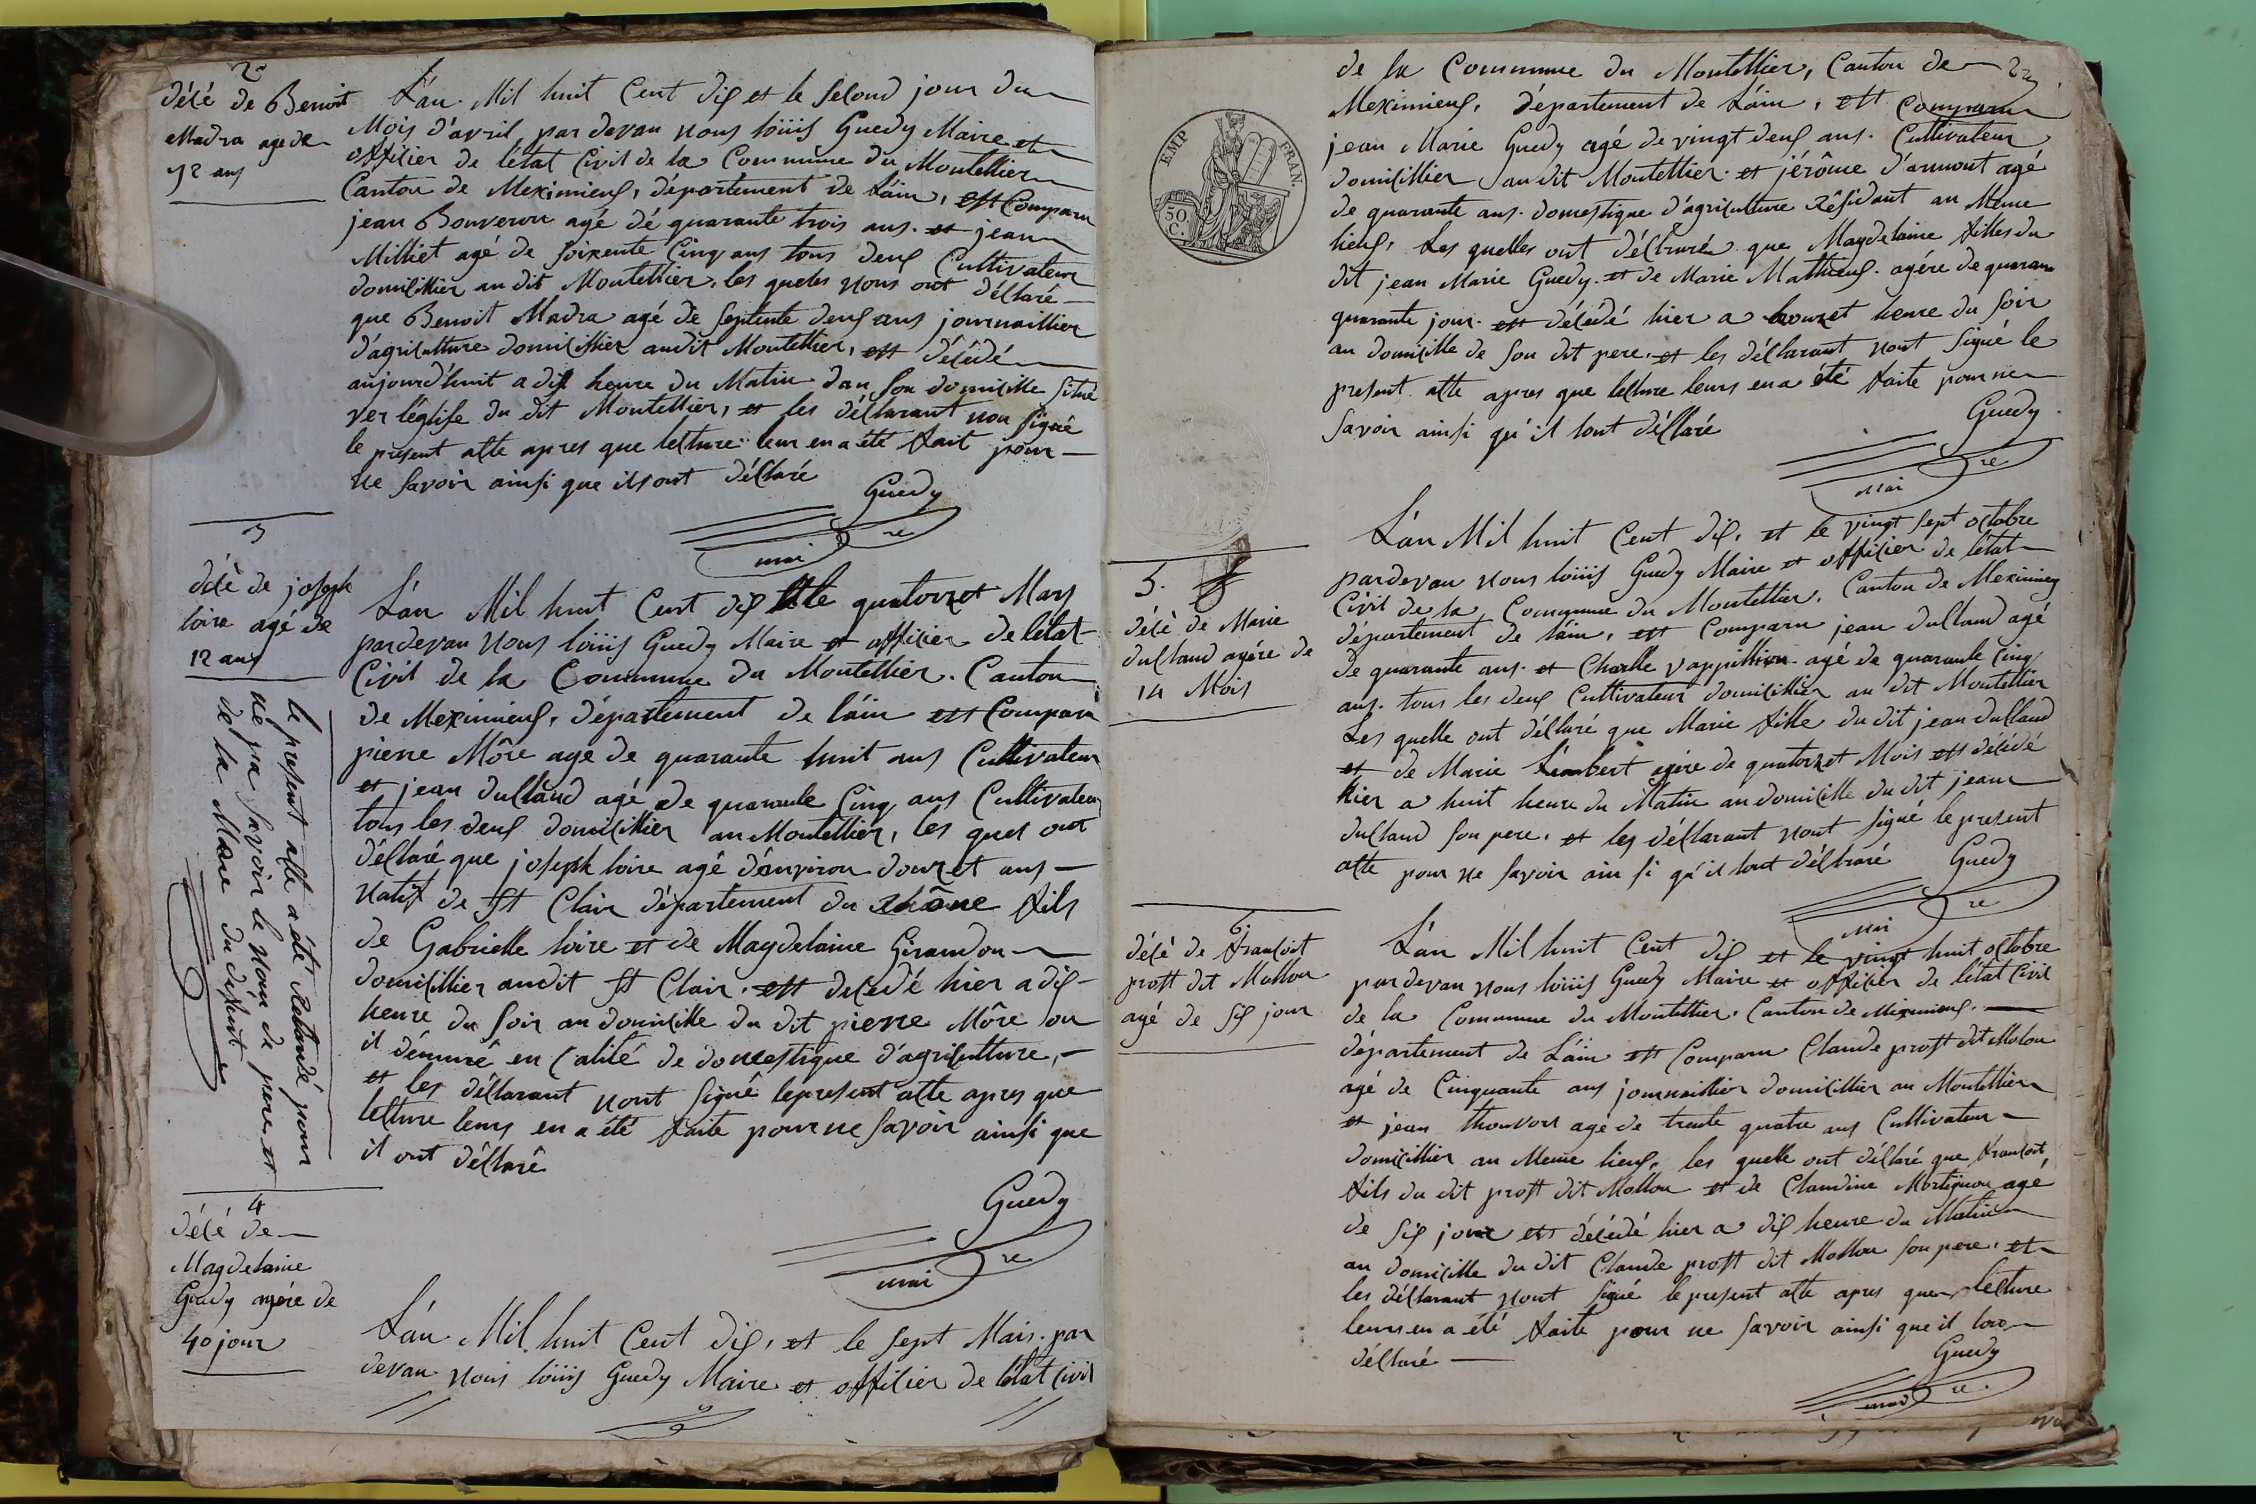 2e
décé de Benoit
Madra agé de
72 ans
L'an Mil huit Cent dix et le second jour du
Mois d'avril, par devan nous loüis Guedy Maire et
officier de l'état Civil de la Commune du Montellier
Canton de Meximieux, département de l'ain, est Comparu
jean Bouveron agé dé quarante trois ans. et jean
Milliet agé de soixente Cinq ans tous deux Cultivateur
domicillier au dit Montellier, les queles nous ont déclaré
que Benoit Madra agé de septente deux ans journaillier
d'agriculture domicillier audit Montellier, est décédé
aujourd'huit a dix heure du Matin dan son domicille situé
ver l'église du dit Montellier, et les déclarant non signé
le présent atte apres que letture leur en a été fait pour
ne savoir ainsi que ils ont déclaré
Guedy
maire
3
décè de joseph
loire agé de
12 ans
le présent atte a été Retardé pour
ne pas savoir le nom de pere et
de la Mere du défunt
L'an Mil huit Cent dix et le quatorzet Mars
pardevan nous loüis Guedy Maire et officier de l'état
Civil de la Commune du Montellier. Canton
de Meximieux, département de l'ain est Comparu
pierre Môre age de quarante huit ans Cultivateur
et jean dulland agé de quarante Cinq ans Cultivateur
tous les deux domicillier au Montellier, les quel ont
déclaré que joseph loire agé d'environ douzet ans
natif de St Clair département du Rhône fils
de Gabrielle loire et de Magdelaine Giraudon
domicillier audit St Clair. est decedé hier a dix
heure du soir au domicille du dit pierre Môre ou
il démuré en Calité de domestique d'agriculture,
et les déclarant nont signé le present atte apres que
letture leurs en a été faite pour ne savoir ainsi que
il ont déclaré
Guedy
maire
4
décé de
Magdelaine
Guedy agére de
40 jour
L'an Mil huit Cent dix, et le sept Mais. par
devan nous loüis Guedy Maire et officier de l'état Civil
de la Commune du Montellier, Canton de
Meximieux, département de L'ain, est Comparu
jean Marie Guedy agé de vingt deux ans. Cultivateur
domicillier au dit Montellier. et jérôme d'armont agé
de quarante ans. domestique d'agriculture résidant au Même
lieux, Les quelles ont déclaré que Magdelaine filles du
dit jean Marie Guedy. et de Marie Mathieux. agére de
quarante jour. est décédé hier a heure du soir
au domicille de son dit pere. et les déclarant nont signé le
present atte apres que letture leurs en a été faite pour ne
savoir ainsi qu'il lont déclaré
Guedy
maire
EMP FRAN.
50 C.
5.
décè de Marie
dulland agére de
14 Mois
L'an Mil huit Cent dix, et le vingt sept octobre
pardevan nous loüis Guedy Maire et officier de l'état
Civil de la Commune du Montellier. Canton de Meximieux
département de l'ain, est Comparu jean dulland agé
de quarante ans. et Charlle vappillion agé de quarante Cinq
ans. tous les deux Cultivateur domicillier au dit Montellier
Les quelle ont déclaré que Marie fille du dit jean dulland
et de Marie agére de quatorzet Mois est décédé
hier a huit heure du Matin au domicille du dit jean
dulland son pere, et les déclarant nont signé le present
atte pour ne savoir ainsi qu'il lont déclaré
Guedy
maire
6.
décè de francoit
prost dit Mollon
agé de six jour
L'an Mil huit Cent dix et le vingt huit octobre
pardevan nous loüis Guedy Maire et officier de l'état Civil
de la Commune du Montellier. Canton de Meximieux.
département de L'ain est Comparu Claude prost dit Molon
agé de Cinquante ans journaillier domicillier au Montellier
et jean thouvon agé de trente quatre ans Cultivateur
domicillier au Meme lieux, les quelle ont déclaré que francoit,
fils du dit prost dit Mollon et de Claudine agé
de six jour est décédé hier a dix heure du Matin
au domicille du dit Claude prost dit Mollon son pere, et
les déclarant nont signé le present atte apres que lecture
leurs en a été faite pour ne savoir ainsi que il lon
déclaré
Guedy
maire